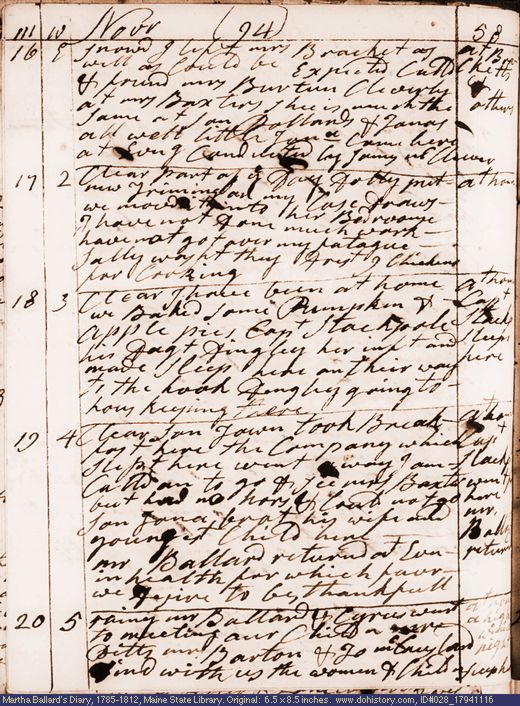 m w Novr (94) 58
16 E Snowd I left mrs Bracket as at Br
well as Could be Expected Calld ketts
& found mrs Burtun Cleverly &
at mrs Baxters she is much the others
same at son Ballard & Jonas
all well little came here
at Evng Conducted by
17 2 Clear part of ye Day Dolly put at home
new Triming on my Case draws
we moovd it into her Bedroome
I have not Done much work
have not got over my fatague
Sally washt they Chickens
for Cooking
18 3 Clear I have been at home at home
we Baked some Pumpkin & Capt
apple pies Capt Stackpole Stack
his Dagt Dingley her inft and sleeps
maid sleep here on their way here
to the hook Dingley going to
hous keeping there
19 4 Clear Son Town took Break at home
fast here the Company which Capt
slept here went away I am Stack
Calld on to go & see mrs Baxter went
but had no hors & Coud not go here
son Jonas brot his wife and mr
youngest Child here Ballrd
mr Ballard returnd at Evn return
in health for which favr
we Desire to be thankfull
20 5 raing mr Ballard & Cyrus went
to meeting our Child n were
mrs Barton &
Dind with us the women & Children sleep here
Martha Ballard's Diary, 1785-1812, Maine State Library. Original: 6.5 x 8.5 inches. www.dohistory.com, ID#028_17941116